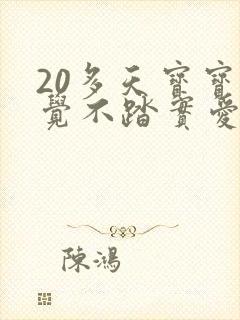 20多天寶寶
覺不踏實愛
陳鴻